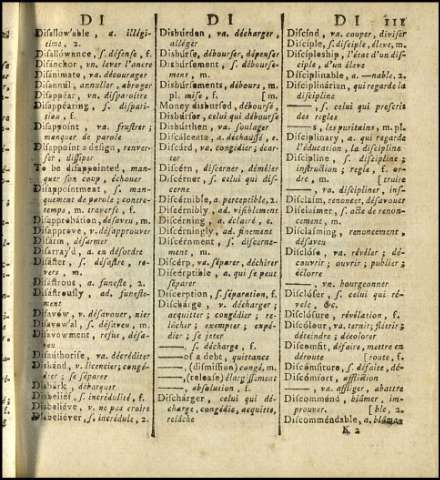 D I
Disallow'able, a. illégi-
time, 2.
Disallówance, s. défense, f.
Disánchor, vn. lever l'ancre
Disánimate, va. décourager
Disannúl, annuler, abroger
Disappéar, vn. disparoître
Disappéaring, s. dispari-
tion, f.
Disappóint, va. frustrer;
manquer de parole
Disappoint a design, renver-
ser, dissiper
To be disappointed, man-
quer son coup, échouer
Disappóintment, s. man-
quement de parole; contre-
temps, m. traverse, f.
Disapprobátion, désaveu, m.
Disappróve, v. désapprouver
Disárm, désarmer
Disarráy'd, a. en désordre
Disáster, s. désastre, re-
vers, m.
Disástrous, a. funeste, 2.
Disástrously, ad. funeste-
ment
Disavów, v. désavouer, nier
Disavow'al, s. désaveu, m.
Disavowment, refus, désa-
veu
Disáuthorise, va. décréditer
Disbánd, v. licencier; congé-
dier; se séparer
Disbárk, débarquer
Disbelief, s. incrédulité, f.
Disbelieve, v. ne pas croire
Disbeliéver, s. incrédule, 2.
D I
Disbúrden, va. décharger,
alléger
Disbúrse, débourser, dépenser
Disbúrsement, s. débourse-
ment, m.
Disbúrsements, débours, m.
pl. mise, f. [m.
Money disbursed, débours,
Disbúrser, celui qui débourse
Disbúrthen, va. soulager
Discálceate, a. déchaussé,
Discárd, va. congédier; écar-
ter
Discérn, discerner, démêler
Discérner, s. celui qui dis-
cerne
Discérnible, a. perceptible, 2.
Discérnibly, ad. visiblement
Discérning, a. éclairé, e.
Discérningly, ad. finement
Discérnment, s. discerne-
ment, m.
Discérp, va. séparer, déchirer
Discérptible, a. qui se peut
séparer
Discerption, s. séparation, f.
Dischárge, v. décharger;
acquitter; congédier; re-
lâcher; exempter; expé-
dier; se jeter
——, s. décharge, f.
—— of a debt, quittance
——, (dismission) congé, m.
——, (release) élargissement
——, absolution, f.
Dischárger, celui qui dé-
charge, congédie, acquitte,
relâche
D I 111
Discínd, va. couper, diviser
Disciple, s. disciple, éleve, m.
Discípleship, l'état d'un dis-
ciple, d'un éleve
Disciplinable, a. —nable, 2.
Disciplinárian, qui regarde la
discipline
——, s. celui qui prescrit
des regles
——s, les puritains, m. pl.
Disciplinary, a. qui regarde
l'éducation, la discipline
Discipline, s. discipline;
instruction; regle, f. or-
dre, m. [truire
——, va. discipliner, ins-
Discláim, renoncer, désavouer
Discláimer, s. acte de renon-
cement, m.
Discláiming, renoncement,
désaveu
Disclóse, va. révéler; dé-
couvrir; ouvrir; publier;
éclorre
——, vn. bourgeonner
Disclóser, s. celui qui ré-
vele, &c.
Disclósure, révélation, f.
Discólour, va. ternir; flétrir;
déteindre; décolorer
Discomfit, défaire, mettre en
déroute [route, f.
Discómfiture, s. défaite, dé-
Discómfort, affliction
——, va. affliger, abattre
Discomménd, blâmer, im-
prouver. [ble, 2.
Discomméndable, a. blâma-
K 2